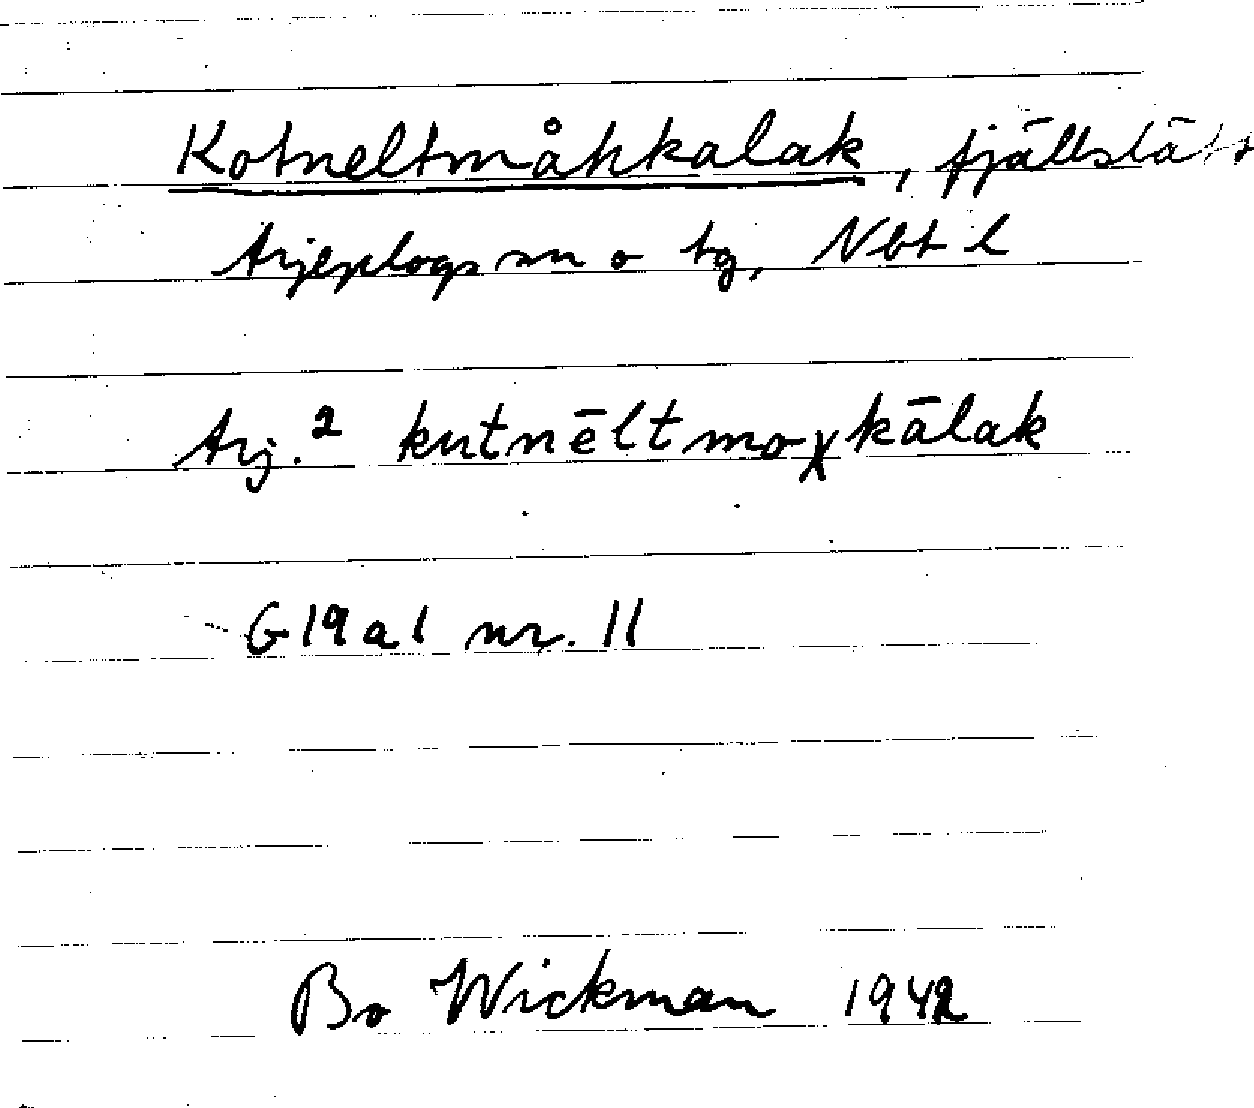 Kotneltmåhkalak, fjällslätt
Arjeplogs sn o tg, Nbt l
Arj.² kutnēltmoχkālak
G19a1 nr. 11
Bo Wickman 1942